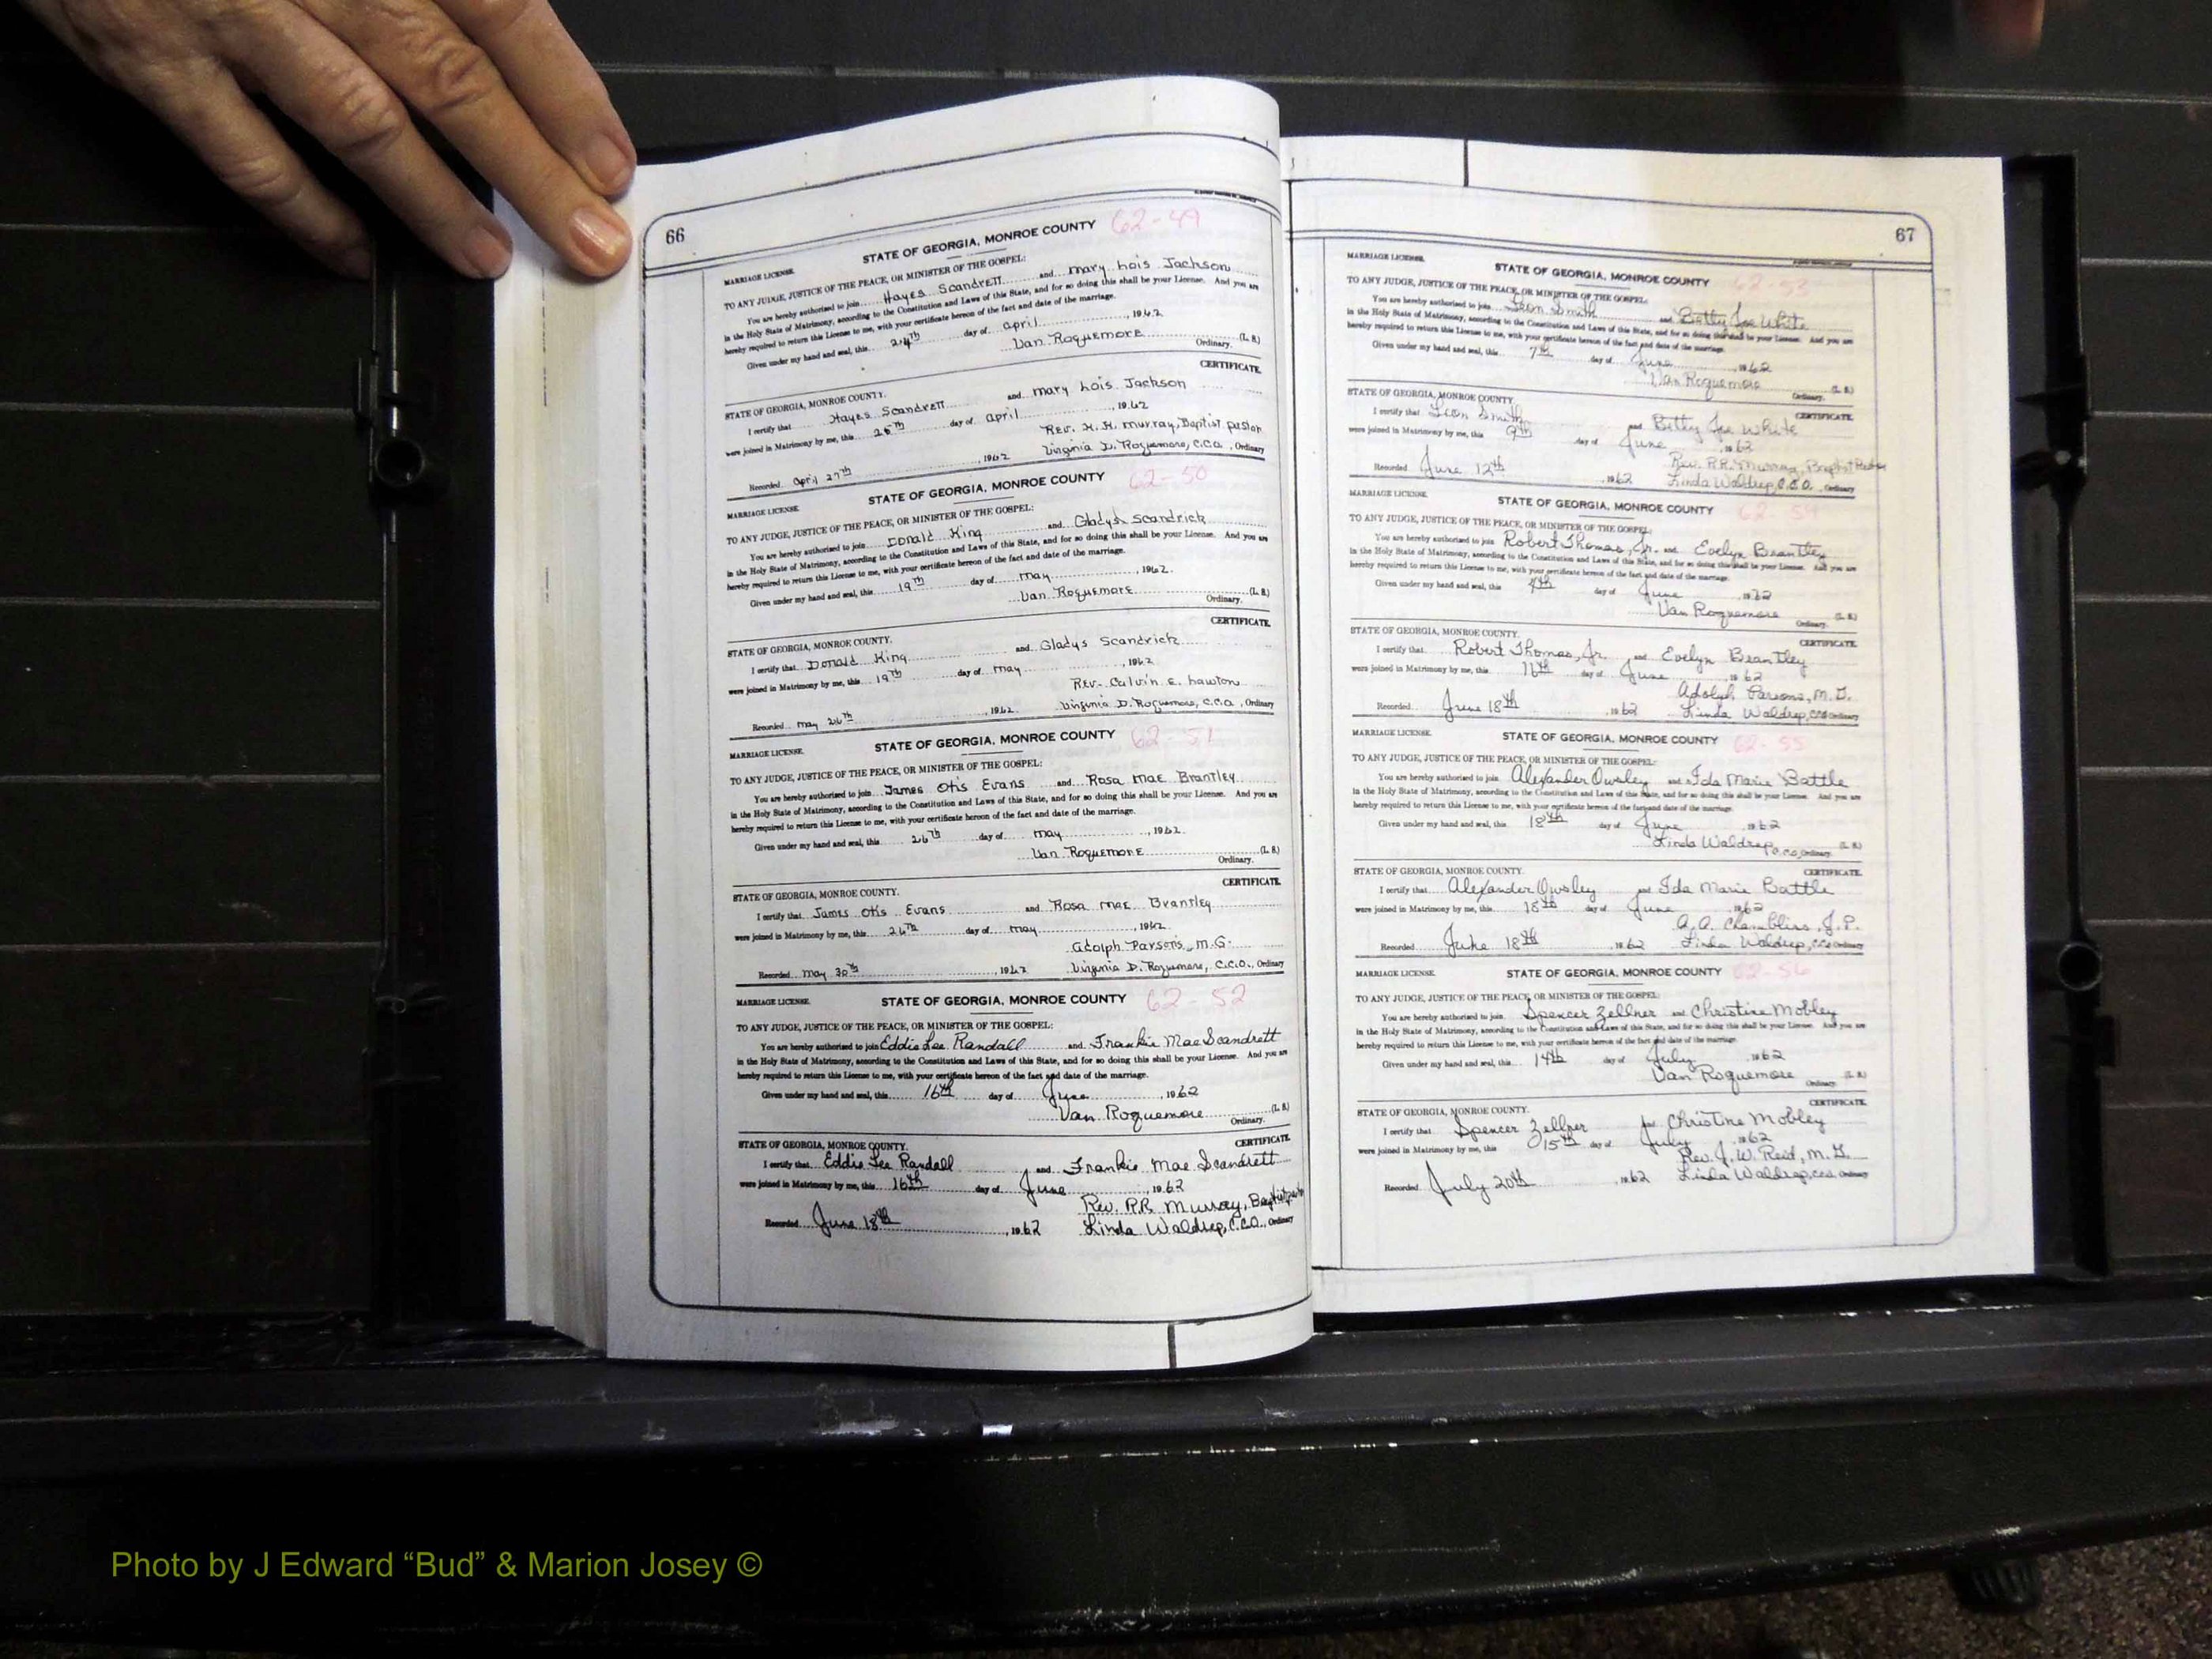 66
STATE OF GEORGIA, MONROE COUNTY 62-49
MARRIAGE LICENSE.
TO ANY JUDGE, JUSTICE OF THE PEACE, OR MINISTER OF THE GOSPEL:
You are hereby authorized to join Hayes Scandrett and Mary Lois Jackson
in the Holy State of Matrimony, according to the Constitution and Laws of this State, and for so doing this shall be your License. And you are
hereby required to return this License to me, with your certificate hereon of the fact and date of the marriage.
Given under my hand and seal, this 24th day of April, 1962
Van Roquemore (L. S.)
Ordinary.
CERTIFICATE.
STATE OF GEORGIA, MONROE COUNTY.
I certify that Hayes Scandrett and Mary Lois Jackson
were joined in Matrimony by me, this 25th day of April, 1962
Rev. H. H. Murray, Baptist pastor
Recorded April 27th, 1962 Virginia D. Roquemore, C.C.O., Ordinary
STATE OF GEORGIA, MONROE COUNTY 62-50
MARRIAGE LICENSE.
TO ANY JUDGE, JUSTICE OF THE PEACE, OR MINISTER OF THE GOSPEL:
You are hereby authorized to join Donald King and Gladys Scandrick
in the Holy State of Matrimony, according to the Constitution and Laws of this State, and for so doing this shall be your License. And you are
hereby required to return this License to me, with your certificate hereon of the fact and date of the marriage.
Given under my hand and seal, this 19th day of May, 1962.
Van Roquemore (L. S.)
Ordinary.
CERTIFICATE.
STATE OF GEORGIA, MONROE COUNTY.
I certify that Donald King and Gladys Scandrick
were joined in Matrimony by me, this 19th day of May, 1962
Rev. Calvin E. Lawton
Recorded May 26th, 1962 Virginia D. Roquemore, C.C.O., Ordinary
STATE OF GEORGIA, MONROE COUNTY 62-51
MARRIAGE LICENSE.
TO ANY JUDGE, JUSTICE OF THE PEACE, OR MINISTER OF THE GOSPEL:
You are hereby authorized to join James Otis Evans and Rosa Mae Brantley
in the Holy State of Matrimony, according to the Constitution and Laws of this State, and for so doing this shall be your License. And you are
hereby required to return this License to me, with your certificate hereon of the fact and date of the marriage.
Given under my hand and seal, this 26th day of May, 1962.
Van Roquemore (L. S.)
Ordinary.
CERTIFICATE.
STATE OF GEORGIA, MONROE COUNTY.
I certify that James Otis Evans and Rosa Mae Brantley
were joined in Matrimony by me, this 26th day of May, 1962.
Adolph Parsons, M.G.
Recorded May 30th, 1962 Virginia D. Roquemore, C.C.O., Ordinary
MARRIAGE LICENSE. STATE OF GEORGIA, MONROE COUNTY 62-52
TO ANY JUDGE, JUSTICE OF THE PEACE, OR MINISTER OF THE GOSPEL:
You are hereby authorized to join Eddie Lee Randall and Frankie Mae Scandrett
in the Holy State of Matrimony, according to the Constitution and Laws of this State, and for so doing this shall be your License. And you are
hereby required to return this License to me, with your certificate hereon of the fact and date of the marriage.
Given under my hand and seal, this 16th day of June, 1962
Van Roquemore (L. S.)
Ordinary.
STATE OF GEORGIA, MONROE COUNTY. CERTIFICATE.
I certify that Eddie Lee Randall and Frankie Mae Scandrett
were joined in Matrimony by me, this 16th day of June, 1962
Rev. P.R. Murray, Baptist
Recorded June 18th, 1962 Linda Waldrep, C.C.O., Ordinary
67
MARRIAGE LICENSE. STATE OF GEORGIA, MONROE COUNTY 62-53
TO ANY JUDGE, JUSTICE OF THE PEACE, OR MINISTER OF THE GOSPEL:
You are hereby authorized to join Leon Smith and Betty Joe White
in the Holy State of Matrimony, according to the Constitution and Laws of this State, and for so doing this shall be your License. And you are
hereby required to return this License to me, with your certificate hereon of the fact and date of the marriage.
Given under my hand and seal, this 7th day of June, 1962
Van Roquemore (L. S.)
Ordinary.
STATE OF GEORGIA, MONROE COUNTY. CERTIFICATE.
I certify that Leon Smith and Betty Joe White
were joined in Matrimony by me, this 9th day of June, 1962
Rev. P.R. Murray, Baptist
Recorded June 12th, 1962 Linda Waldrep, C.C.O., Ordinary
MARRIAGE LICENSE. STATE OF GEORGIA, MONROE COUNTY 62-54
TO ANY JUDGE, JUSTICE OF THE PEACE, OR MINISTER OF THE GOSPEL:
You are hereby authorized to join Robert Thomas, Jr. and Evelyn Beantley
in the Holy State of Matrimony, according to the Constitution and Laws of this State, and for so doing this shall be your License. And you are
hereby required to return this License to me, with your certificate hereon of the fact and date of the marriage.
Given under my hand and seal, this day of June, 1962
Van Roquemore (L. S.)
Ordinary.
STATE OF GEORGIA, MONROE COUNTY. CERTIFICATE.
I certify that Robert Thomas, Jr. and Evelyn Beantley
were joined in Matrimony by me, this day of June, 1962
Adolph Parsons, M.G.
Recorded June 18th, 1962 Linda Waldrep, CCO Ordinary
MARRIAGE LICENSE. STATE OF GEORGIA, MONROE COUNTY 62-55
TO ANY JUDGE, JUSTICE OF THE PEACE, OR MINISTER OF THE GOSPEL:
You are hereby authorized to join Alexander Owsley and Ida Marie Battle
in the Holy State of Matrimony, according to the Constitution and Laws of this State, and for so doing this shall be your License. And you are
hereby required to return this License to me, with your certificate hereon of the fact and date of the marriage.
Given under my hand and seal, this 18th day of June, 1962
Linda Waldrep, C.C.O., Ordinary. (L. S.)
STATE OF GEORGIA, MONROE COUNTY. CERTIFICATE.
I certify that Alexander Owsley and Ida Marie Battle
were joined in Matrimony by me, this 18th day of June, 1962
A.A. Chambliss, J.P.
Recorded June 18th, 1962 Linda Waldrep, CCO Ordinary
MARRIAGE LICENSE. STATE OF GEORGIA, MONROE COUNTY 62-56
TO ANY JUDGE, JUSTICE OF THE PEACE, OR MINISTER OF THE GOSPEL:
You are hereby authorized to join Spencer Zellner and Christine Mobley
in the Holy State of Matrimony, according to the Constitution and Laws of this State, and for so doing this shall be your License. And you are
hereby required to return this License to me, with your certificate hereon of the fact and date of the marriage.
Given under my hand and seal, this 14th day of July, 1962
Van Roquemore (L. S.)
Ordinary.
STATE OF GEORGIA, MONROE COUNTY. CERTIFICATE.
I certify that Spencer Zellner and Christine Mobley
were joined in Matrimony by me, this 15th day of July, 1962
Rev. J. W. Reid, M.G.
Recorded July 20th, 1962 Linda Waldrep, CCO Ordinary
Photo by J Edward “Bud” & Marion Josey ©